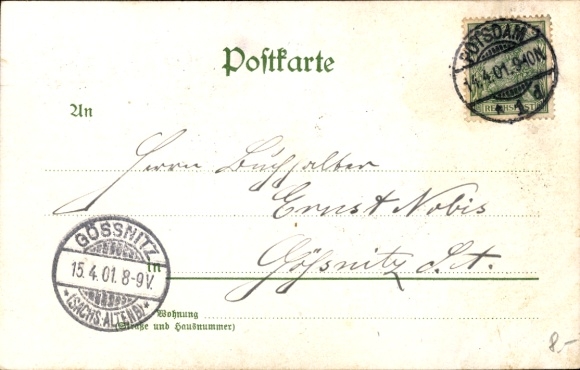 Postkarte
POTSDAM
4.01.9-10N.
REICHSPOST
An
Herrn Buchhalter
Ernst Nobis
Gössnitz S.A.
GÖSSNITZ
15.4.01.8-9V.
*(SACHS.-ALTENB.)*
in
Wohnung
(Straße und Hausnummer)
8.-